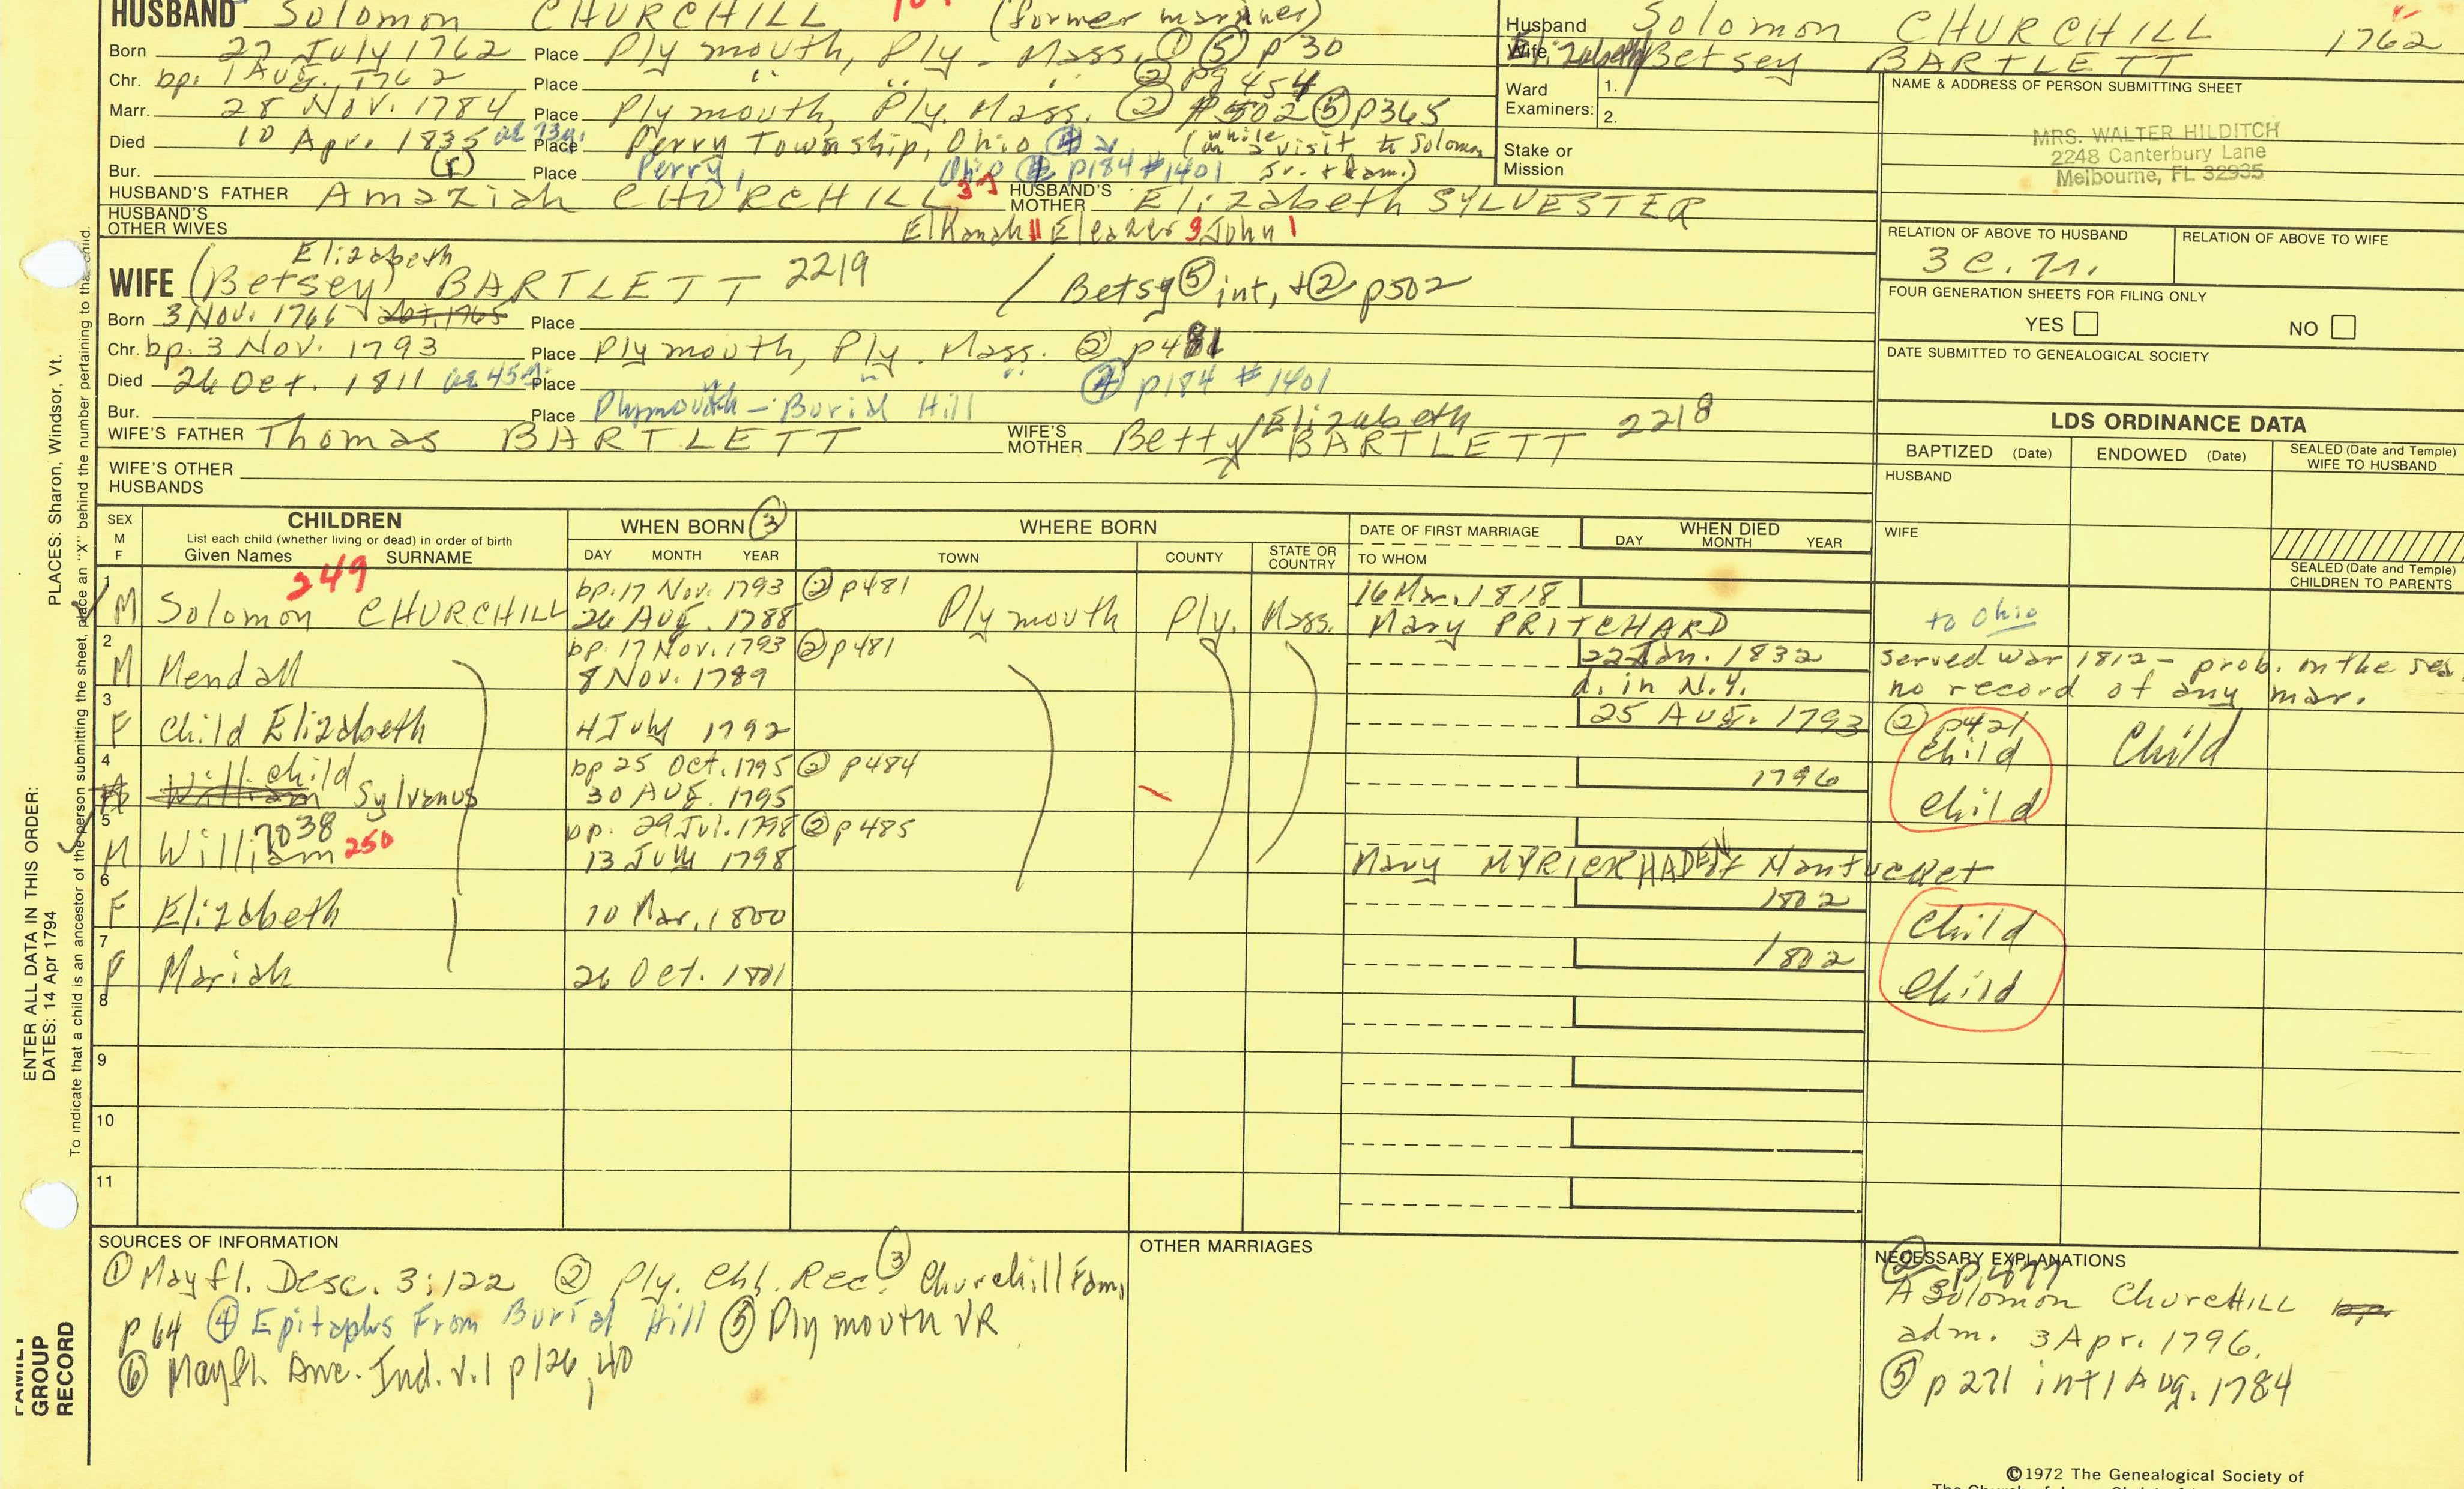 HUSBAND Solomon CHURCHILL (former mariner)
Born 27 July 1762 Place Plymouth, Ply - Mass. ① ⑤ p 30
Chr. bp. 1 Aug. 1762 Place " " " ② pg 454
Marr. 28 Nov. 1784 Place Plymouth, Ply. Mass. ② p502 ⑤ p365
Died 10 Apr. 1835 ae 73y. Place Perry Township, Ohio ④ (while on a visit to Solomon
Bur. (r) Place Perry, Ohio p184 #1401 Jr. & fam.)
HUSBAND'S FATHER Amaziah CHURCHILL 37 HUSBAND'S MOTHER Elizabeth SYLVESTER
HUSBAND'S OTHER WIVES Elkanah 11 Eleazer 3 John 1
Elizabeth
WIFE (Betsey) BARTLETT 2219 / Betsy ⑤ int, + ② p502
Born 3 Nov. 1766 abt. 1765 Place
Chr. bp. 3 Nov. 1793 Place Plymouth, Ply. Mass. ② p481
Died 26 Oct. 1811 ae 45y. Place " " " ④ p184 #1401
Bur. Place Plymouth - Burial Hill
WIFE'S FATHER Thomas BARTLETT WIFE'S MOTHER Betty/Elizabeth BARTLETT 2218
WIFE'S OTHER HUSBANDS
Husband Solomon CHURCHILL 1762
Wife Elizabeth/Betsey BARTLETT
Ward Examiners: 1.
2.
Stake or Mission
NAME & ADDRESS OF PERSON SUBMITTING SHEET
MRS. WALTER HILDITCH
2248 Canterbury Lane
Melbourne, FL 32935
RELATION OF ABOVE TO HUSBAND RELATION OF ABOVE TO WIFE
3 c. 7r.
FOUR GENERATION SHEETS FOR FILING ONLY
YES NO
DATE SUBMITTED TO GENEALOGICAL SOCIETY
LDS ORDINANCE DATA
BAPTIZED (Date) ENDOWED (Date) SEALED (Date and Temple) WIFE TO HUSBAND
HUSBAND
WIFE
SEALED (Date and Temple) CHILDREN TO PARENTS
SEX M F CHILDREN WHEN BORN ③ WHERE BORN DATE OF FIRST MARRIAGE WHEN DIED
List each child (whether living or dead) in order of birth
Given Names SURNAME DAY MONTH YEAR TOWN COUNTY STATE OR COUNTRY TO WHOM DAY MONTH YEAR
249
1 bp. 17 Nov. 1793 ② p481 16 Mar. 1818
M Solomon CHURCHILL 26 Aug. 1788 Plymouth Ply. Mass. Mary PRITCHARD to Ohio
2 bp. 17 Nov. 1793 ② p481 22 Jan. 1832 served war 1812 - prob. on the sea
M Mendall 8 Nov. 1789 d. in N.Y. no record of any mar.
3 25 Aug. 1793 ② p421
F Child Elizabeth 4 July 1792 Child Child
4 child bp 25 Oct. 1795 ② p484 1796
M William Sylvanus 30 Aug. 1795 Child
5 7038 bp. 29 Jul. 1798 ② p485
M William 250 13 July 1798 Mary MYRICK HADEN of Nantucket
6 1802
F Elizabeth 10 Mar. 1800 Child
7 1802
F Mariah 26 Oct. 1801 Child
8
9
10
11
SOURCES OF INFORMATION
① Mayfl. Desc. 3:122 ② Ply. Chh. Rec. ③ Churchill Fam.
p 64 ④ Epitaphs From Burial Hill ⑤ Plymouth VR
⑥ Mayfl. Anc. Ind. v.1 p126, 40
OTHER MARRIAGES
NECESSARY EXPLANATIONS
② p477
A Solomon CHURCHILL bp.
adm. 3 Apr. 1796.
⑤ p 271 int 1 Aug. 1784
©1972 The Genealogical Society of
PLACES: Sharon, Windsor, Vt.
ENTER ALL DATA IN THIS ORDER:
DATES: 14 Apr 1794
To indicate that a child is an ancestor of the person submitting the sheet, place an "X" behind the number pertaining to that child.
FAMILY GROUP RECORD